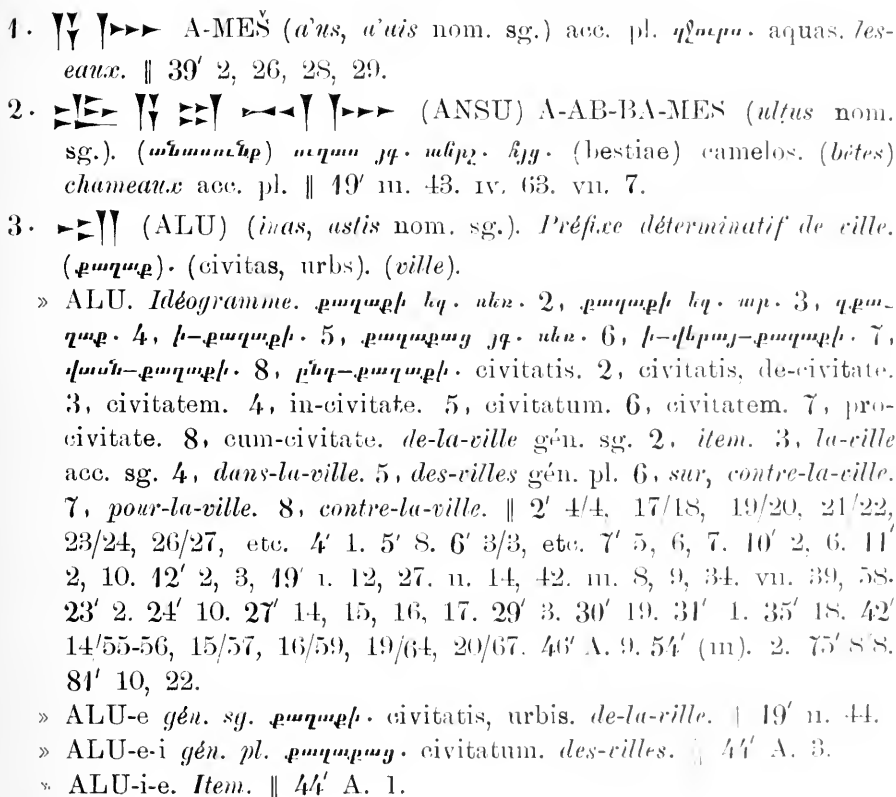 1. 𒀀 𒈨𒌍 A-MEŠ (a'us, a'uis nom. sg.) acc. pl. զջուրս. aquas. les-
eaux. ‖ 39′ 2, 26, 28, 29.
2. 𒀲 𒀀 𒀊 𒁀 𒈨𒌍 (ANSU) A-AB-BA-MES (ulṭus nom.
sg.). (անասունք) ուղտս յգ. հյց. (bestiae) camelos. (bêtes)
chameaux acc. pl. ‖ 19′ III. 43. IV. 63. VII. 7.
3. 𒌷 (ALU) (inas, astis nom. sg.). Préfixe déterminatif de ville.
(քաղաք). (civitas, urbs). (ville).
» ALU. Idéogramme. քաղաքի եզ. սեռ. 2, քաղաքի եզ. առ. 3, զքա-
ղաք. 4, ի-քաղաքի. 5, քաղաքաց յգ. սեռ. 6, ի-վերայ-քաղաքի. 7,
վասն-քաղաքի. 8, ընդ-քաղաքի. civitatis. 2, civitatis, de-civitate.
3, civitatem. 4, in-civitate. 5, civitatum. 6, civitatem. 7, pro-
civitate. 8, cum-civitate. de-la-ville gén. sg. 2, item. 3, la-ville
acc. sg. 4, dans-la-ville. 5, des-villes gén. pl. 6, sur, contre-la-ville.
7, pour-la-ville. 8, contre-la-ville. ‖ 2′ 4/4, 17/18, 19/20, 21/22,
23/24, 26/27, etc. 4′ 1. 5′ 8. 6′ 3/3, etc. 7′ 5, 6, 7. 10′ 2, 6. 11′
2, 10. 12′ 2, 3, 19′ I. 12, 27. II. 14, 42. III. 8, 9, 34. VII. 39, 58.
23′ 2. 24′ 10. 27′ 14, 15, 16, 17. 29′ 3. 30′ 19. 31′ 1. 35′ 18. 42′
14/55-56, 15/57, 16/59, 19/64, 20/67. 46′ A. 9. 54′ (III). 2. 75′ 8/8.
81′ 10, 22.
» ALU-e gén. sg. քաղաքի. civitatis, urbis. de-la-ville. ‖ 19′ II. 44.
» ALU-e-i gén. pl. քաղաքաց. civitatum. des-villes. ‖ 44′ A. 3.
» ALU-i-e. Item. ‖ 44′ A. 1.